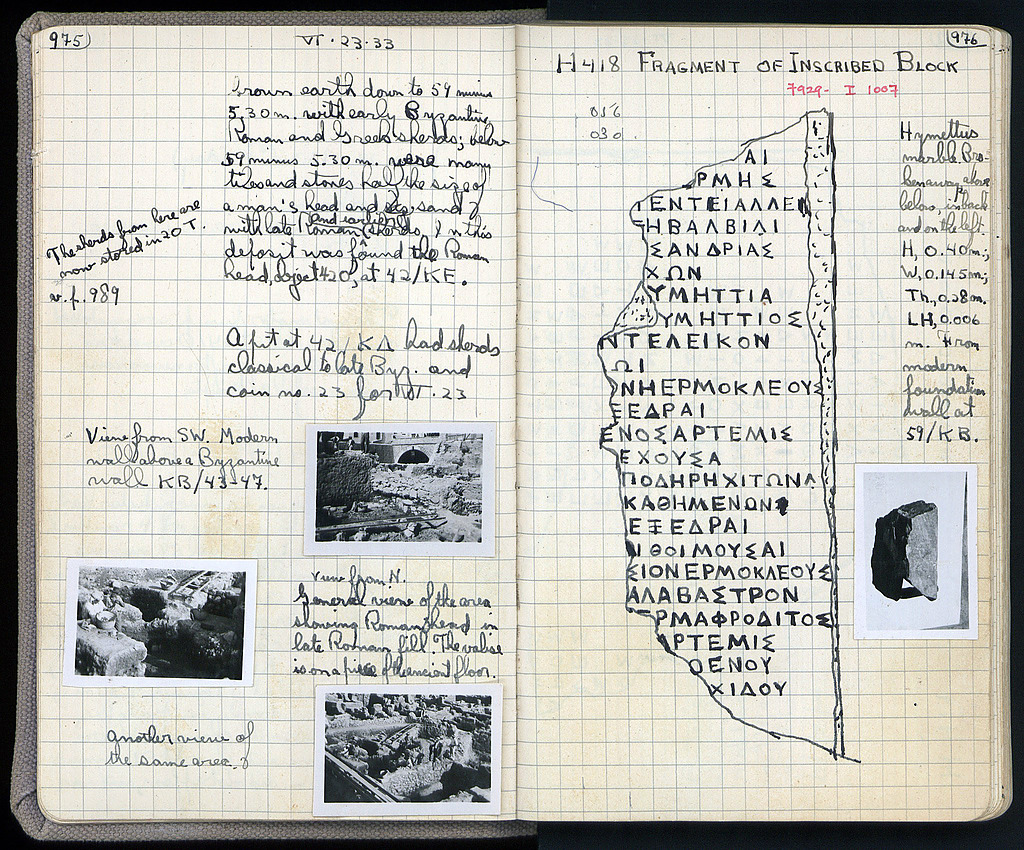 975
VI·23·33
brown earth down to 59 minus
5.30 m. with early Byzantine,
Roman and Greek sherds; below
59 minus 5.30 m. were many
tiles and stones half the size of
a man's head and sand
with late Roman and earlier sherds. In this
deposit was found the Roman
head, object 420, at 42/KE.
The sherds from here are
now stored in 20 T.
v. p. 989
A pit at 42/ΚΔ had sherds
classical to late Byz. and
coin no. 23 for VI.23
View from SW. Modern
wall above a Byzantine
wall KB/43-47.
View from N.
General view of the area
showing Roman head in
late Roman fill. The valise
is on a piece of the ancient floor.
Another view of
the same area.
976
H418 FRAGMENT OF INSCRIBED BLOCK
7929- I 1007
016
030.
ΑΙ
ΡΜΗΣ
ΙΕΝΤΕΙΑΛΛΕΙ
ΗΒΑΛΒΙΛΙ
ΞΑΝΔΡΙΑΣ
ΧΩΝ
ΥΜΗΤΤΙΑ
ΥΜΗΤΤΙΟΣ
ΝΤΕΛΕΙΚΟΝ
ΩΙ
ΝΗΕΡΜΟΚΛΕΟΥΣ
ΞΕΔΡΑΙ
ΕΝΟΣΑΡΤΕΜΙΣ
ΕΧΟΥΣΑ
ΠΟΔΗΡΗΧΙΤΩΝΑ
ΚΑΘΗΜΕΝΩΝ
ΕΞΕΔΡΑΙ
ΙΘΟΙΜΟΥΣΑΙ
ΣΙΟΝΕΡΜΟΚΛΕΟΥΣ
ΑΛΑΒΑΣΤΡΟΝ
ΡΜΑΦΡΟΔΙΤΟΣ
ΑΡΤΕΜΙΣ
ΟΕΝΟΥ
ΧΙΔΟΥ
Hymettus
marble. Bro-
ken away above
below, in back
and on the left.
H, 0.40 m;
W, 0.145 m;
Th, 0.28 m.
LH, 0.006
m. From
modern
foundation
wall at
59/KB.